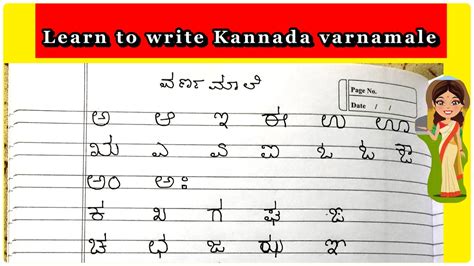 Learn to write Kannada varnamale
ವರ್ಣಮಾಲೆ
Page No.
Date / /
ಅ ಆ ಇ ಈ ಉ ಊ
ಋ ಎ ಏ ಐ ಒ ಓ ಔ
ಅಂ ಅಃ
ಕ ಖ ಗ ಘ ಙ
ಚ ಛ ಜ ಝ ಞ